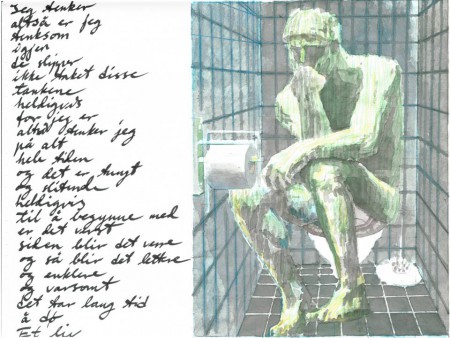 Jeg tenker
altså er jeg
tenksom
igjen
de slipper
ikke taket disse
tankene
heldigvis
for jeg er
alltid tenker jeg
på alt
hele tiden
og det er tungt
og slitende
heldigvis
til å begynne med
er det verst
siden blir det verre
og så blir det lettere
og enklere
og varsomt
det tar lang tid
å dø
Et liv